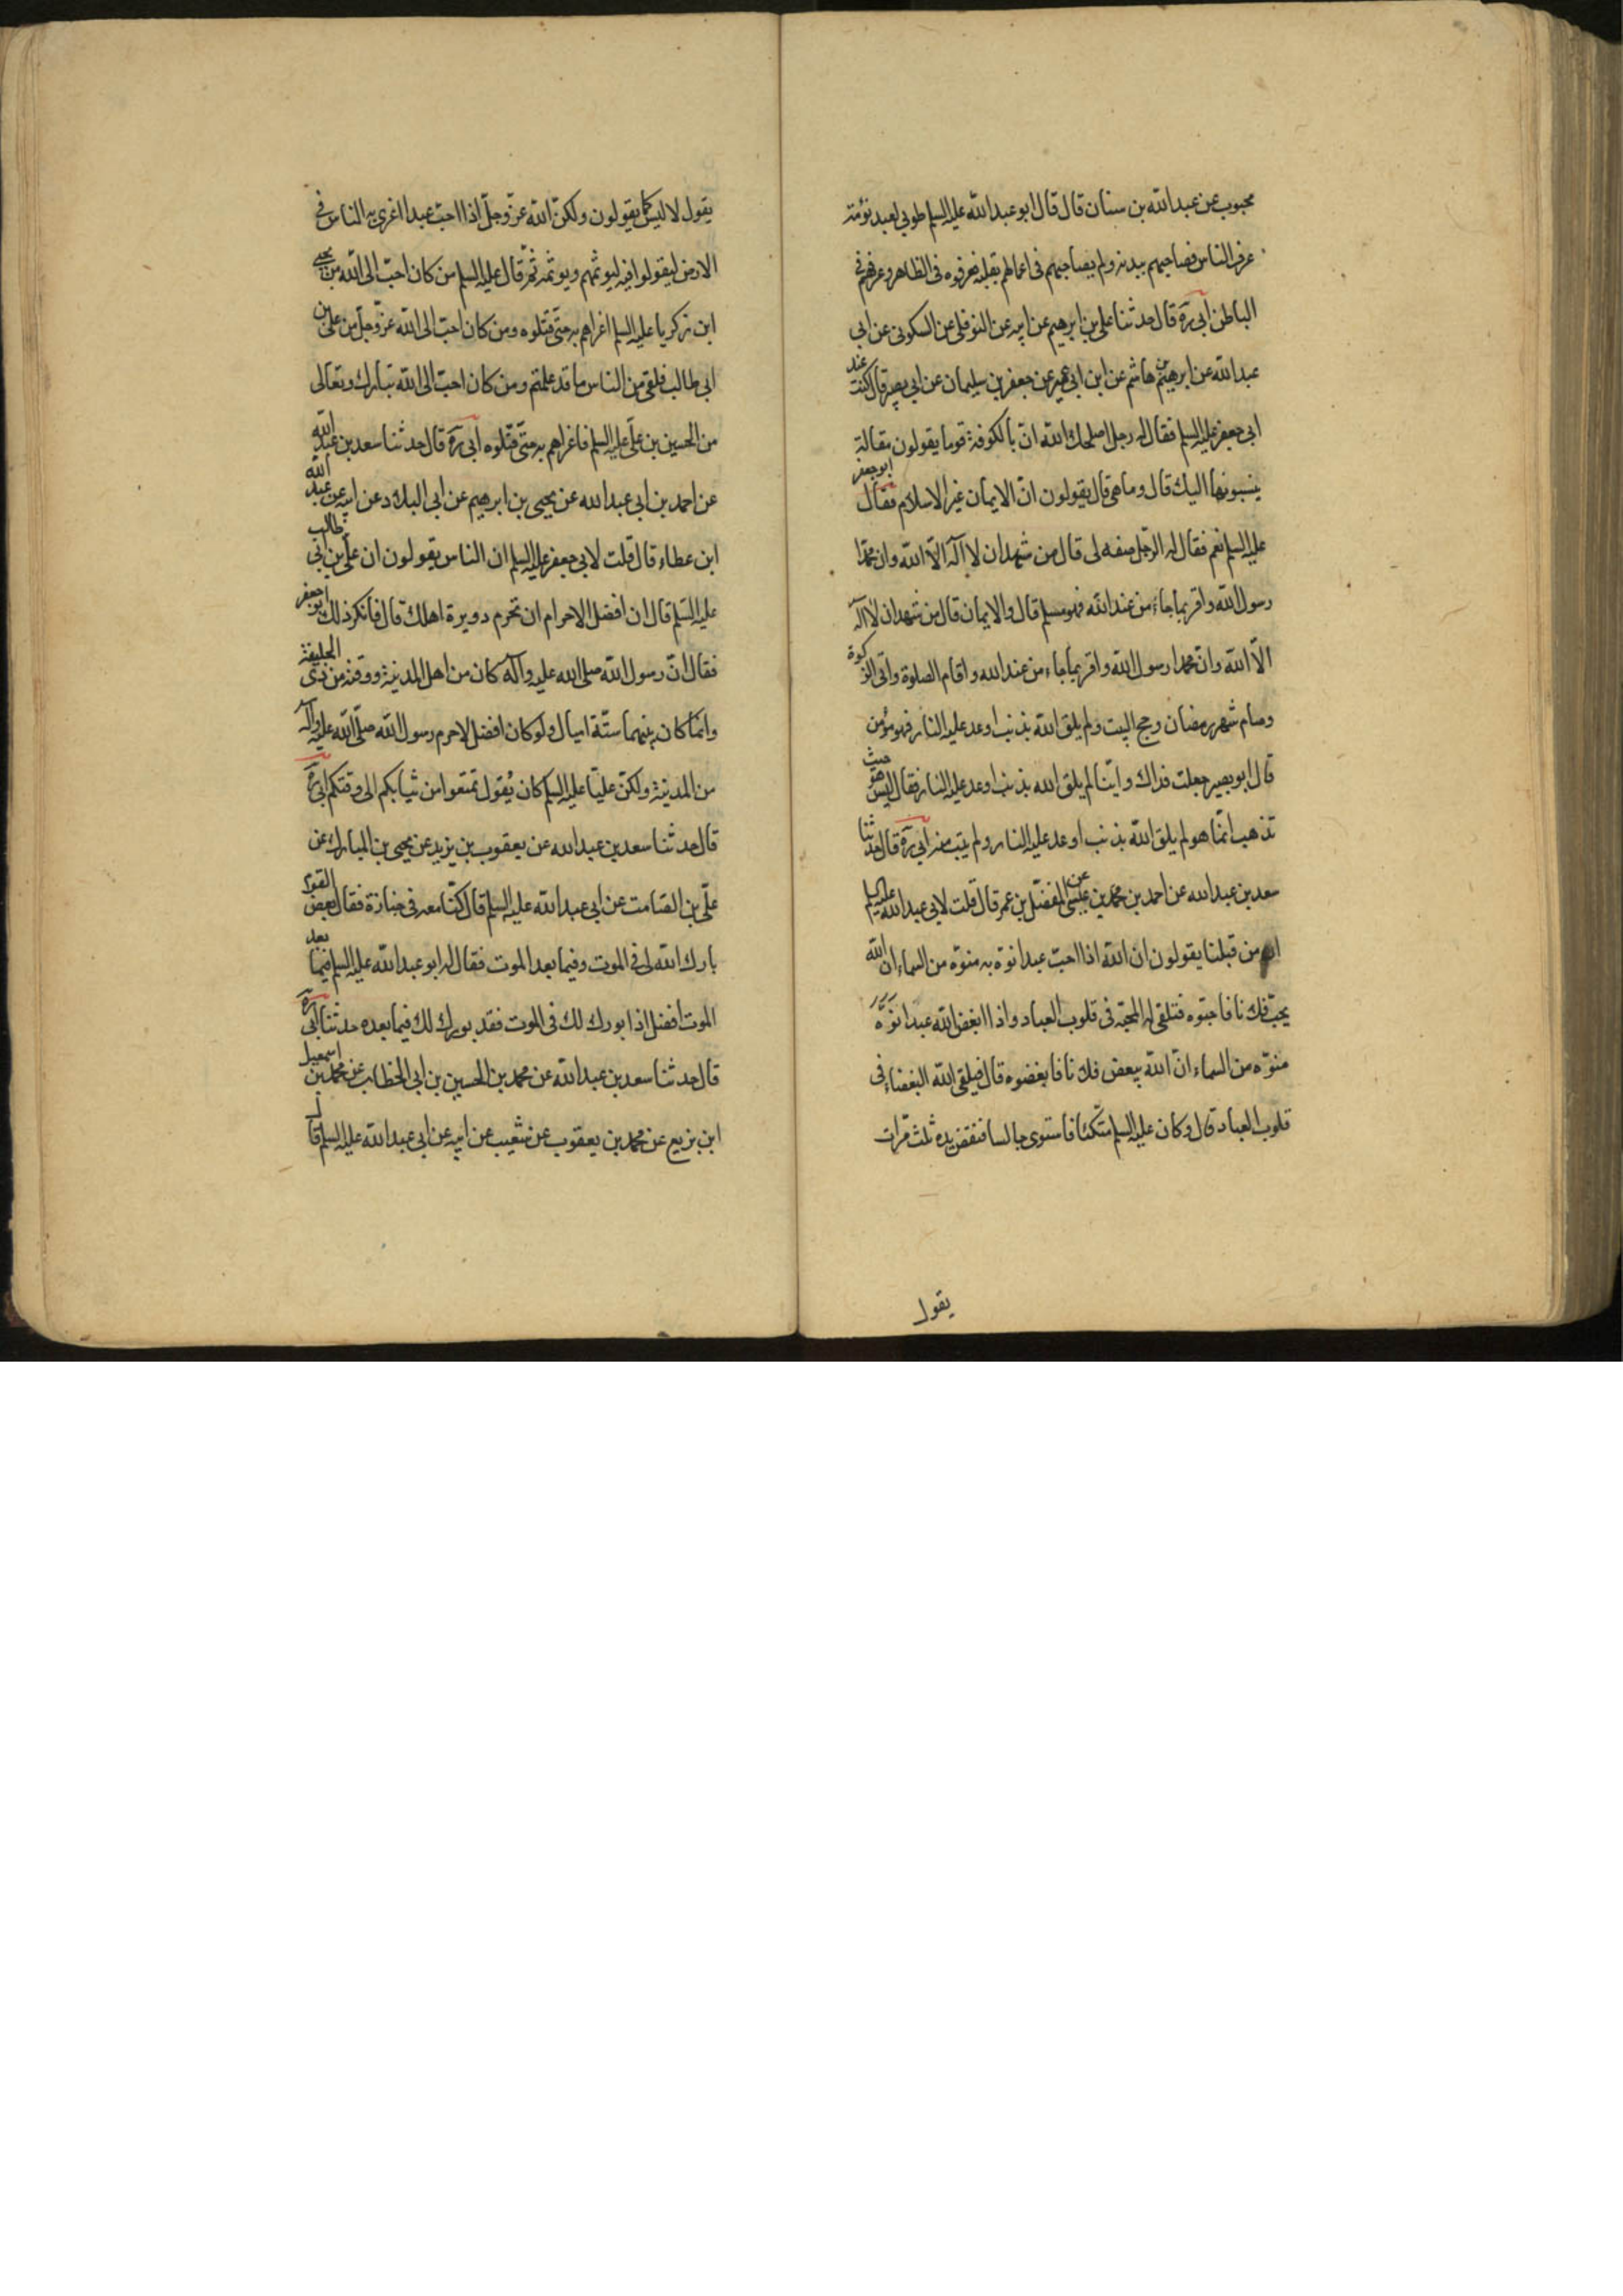 محبوب عن عبد الله بن سنان قال قال ابو عبد الله عليه السلم طوبى لعبد نؤمة
عرف الناس فصاحبهم ببدنه ولم يصاحبهم فى اعمالهم بقلبه فعرفوه فى الظاهر وعرفهم فى
الباطن ابى ره قال حدثنا على بن ابرهيم عن ابيه عن النوفلى عن السكونى عن ابى
عبد الله عن ابرهيم بن هاشم عن ابن ابى عمير عن جعفر بن سليمان عن ابى بصير قال كنت عند
ابى جعفر عليه السلم فقال له رجل اصلحك الله انّ بالكوفة قوما يقولون مقالة
ينسبونها اليك قال وما هى قال يقولون انّ الايمان غير الاسلام فقال ابو جعفر
عليه السلم نعم فقال له الرجل صفه لى قال من شهد ان لا اله الّا الله وان محمّدا
رسول الله واقر بما جاء من عند الله فهو مسلم قال والايمان قال من شهد ان لا اله
الّا الله وانّ محمدا رسول الله واقر بما جاء من عند الله واقام الصلوة واتى الزكوة
وصام شهر رمضان وحج البيت ولم يلق الله بذنب اوعد عليه النار فهو مؤمن
قال ابو بصير جعلت فداك وايّنا لم يلق الله بذنب اوعد عليه النار فقال ليس هو حيث
تذهب انمّا هو لم يلق الله بذنب اوعد عليه النار ولم يتب منه ابى ره قال حدثنا
سعد بن عبد الله عن احمد بن محمد بن عيسى عن المفضّل بن عمر قال قلت لابى عبد الله عليه السلم
ان من قبلنا يقولون ان الله اذا احبّ عبدا نوّه به منوّه من السماء ان الله
يحبّ فلانا فاحبّوه فتلقى له المحبّة فى قلوب العباد واذا ابغض الله عبدا نوّه
منوّه من السماء انّ الله يبغض فلانا فابغضوه قال فيلقى الله البغضاء فى
قلوب العباد قال وكان عليه السلم متّكئا فاستوى جالسا فنفض يده ثلث مرّات
يقول
يقول لا ليس كما يقولون ولكنّ الله عزّ وجلّ اذا احبّ عبدا اغرى به الناس فى
الارض ليقولوا فيه ليوثمهم ويوثمه ثمّ قال عليه السلم من كان احبّ الى الله من يحيى
ابن زكريا عليه السلم اغراهم به حتّى قتلوه ومن كان احبّ الى الله عزّ وجلّ من على بن
ابى طالب فلقى من الناس ما قد علمتم ومن كان احبّ الى الله تبارك وتعالى
من الحسين بن علىّ عليه السلم فاغراهم به حتّى قتلوه ابى ره قال حدثنا سعد بن عبد الله
عن احمد بن ابى عبد الله عن يحيى بن ابرهيم عن ابى البلاد عن ابيه عن عبد الله
ابن عطاء قال قلت لابى جعفر عليه السلم ان الناس يقولون ان علىّ بن ابى طالب
عليه السّلم قال ان افضل الاحرام ان تحرم دويرة اهلك قال فانكر ذلك ابو جعفر
فقال انّ رسول الله صلى الله عليه وآله كان من اهل المدينة ووقته من ذى الحليفة
وانمّا كان بينهما ستّة اميال ولو كان افضل لاحرم رسول الله صلّى الله عليه وآله
من المدينة ولكنّ عليّا عليه السلم كان يُقول تمتعوا من ثيابكم الى وقتكم ابى ره
قال حدثنا سعد بن عبد الله عن يعقوب بن يزيد عن يحيى بن المبارك عن
علىّ بن الصّامت عن ابى عبد الله عليه السلم قال كنّا معه فى جنازة فقال بعض القوم
بارك الله لى فى الموت وفيما بعد الموت فقال له ابو عبد الله عليه السلم فيما بعد
الموت افضل اذا بورك لك فى الموت فقد بورك لك فيما بعده حدثنا ابى ره
قال حدثنا سعد بن عبد الله عن محمد بن الحسين بن ابى الخطّاب عن محمد بن اسمعيل
ابن بزيع عن محمد بن يعقوب عن شعيب عن ابيه عن ابى عبد الله عليه السلم قال